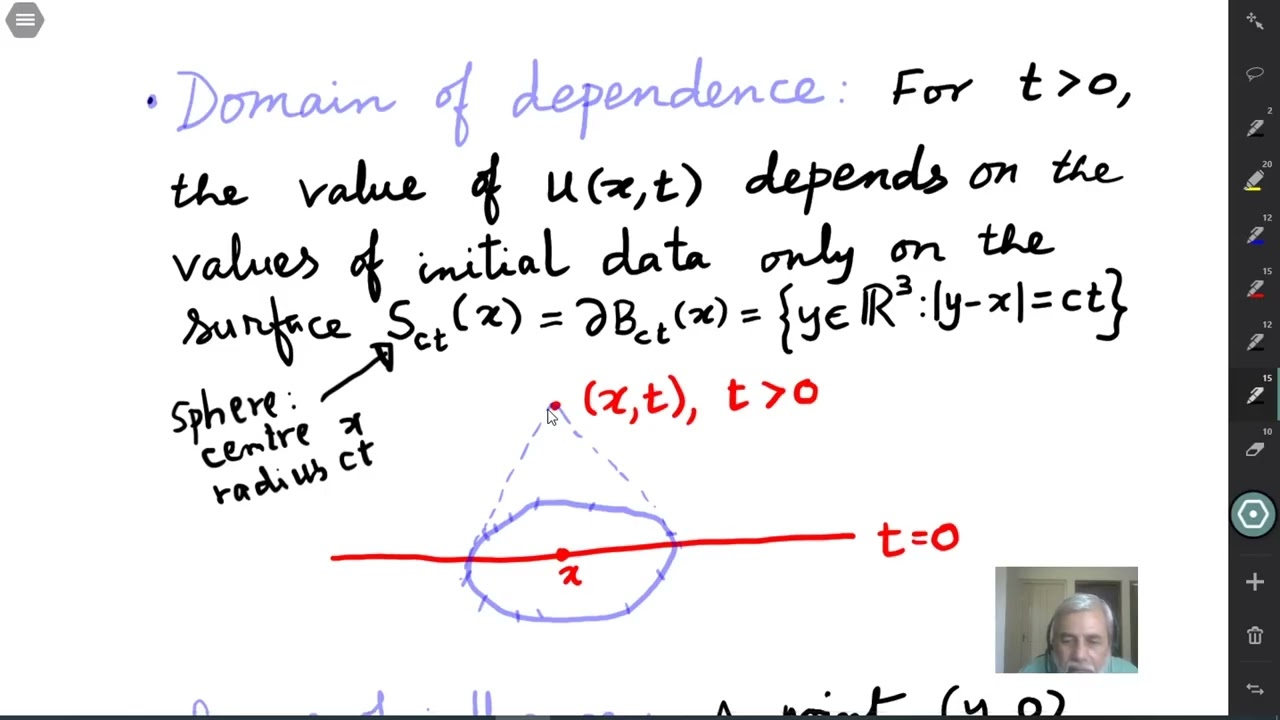 • Domain of dependence: For t>0,
the value of u(x,t) depends on the
values of initial data only on the
surface S_ct(x) = ∂B_ct(x) = {y∈ℝ³:|y-x|=ct}
Sphere:
centre x
radius ct
(x,t), t>0
t=0
x
A point (y,0)
2
20
12
15
12
15
10